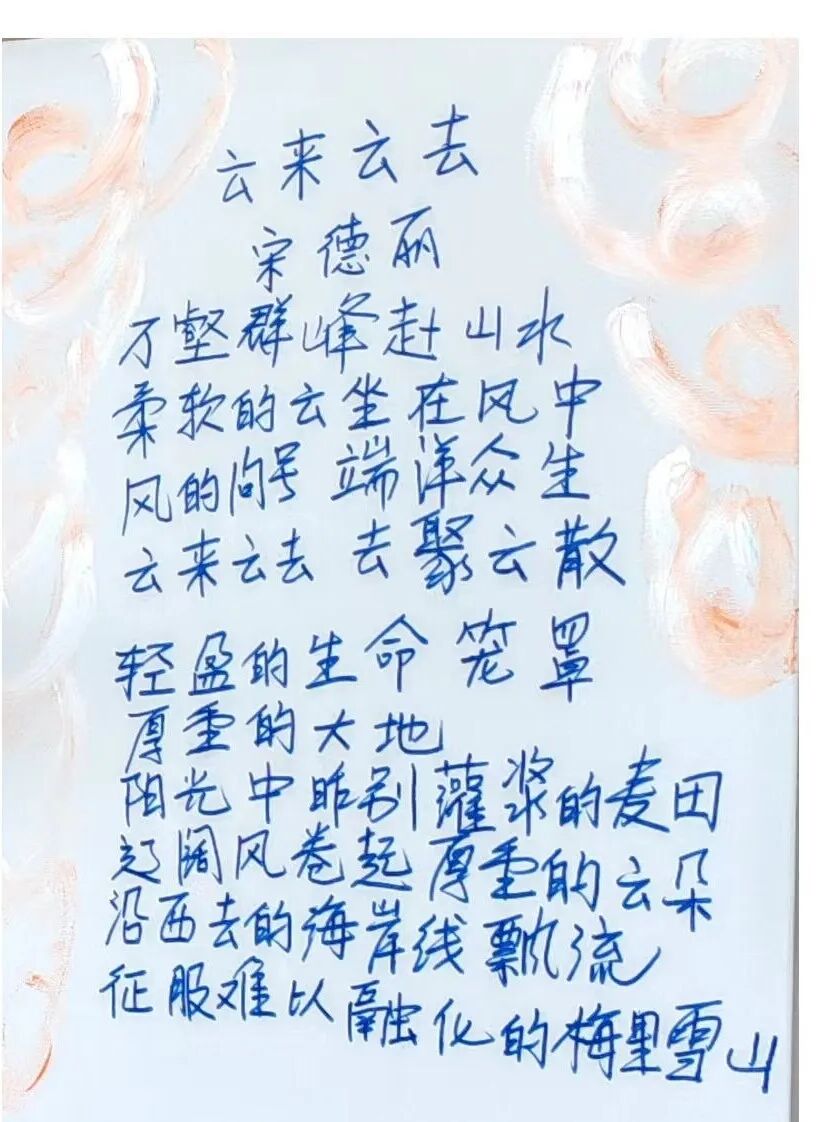 云来云去
宋德丽
万壑群峰赴山水
柔软的云坐在风中
风的问号 端洋众生
云来云去 去聚云散
轻盈的生命笼罩
厚重的大地
阳光中昨别灌浆的麦田
辽阔风卷起厚重的云朵
沿西去的海岸线飘流
征服难以融化的梅里雪山